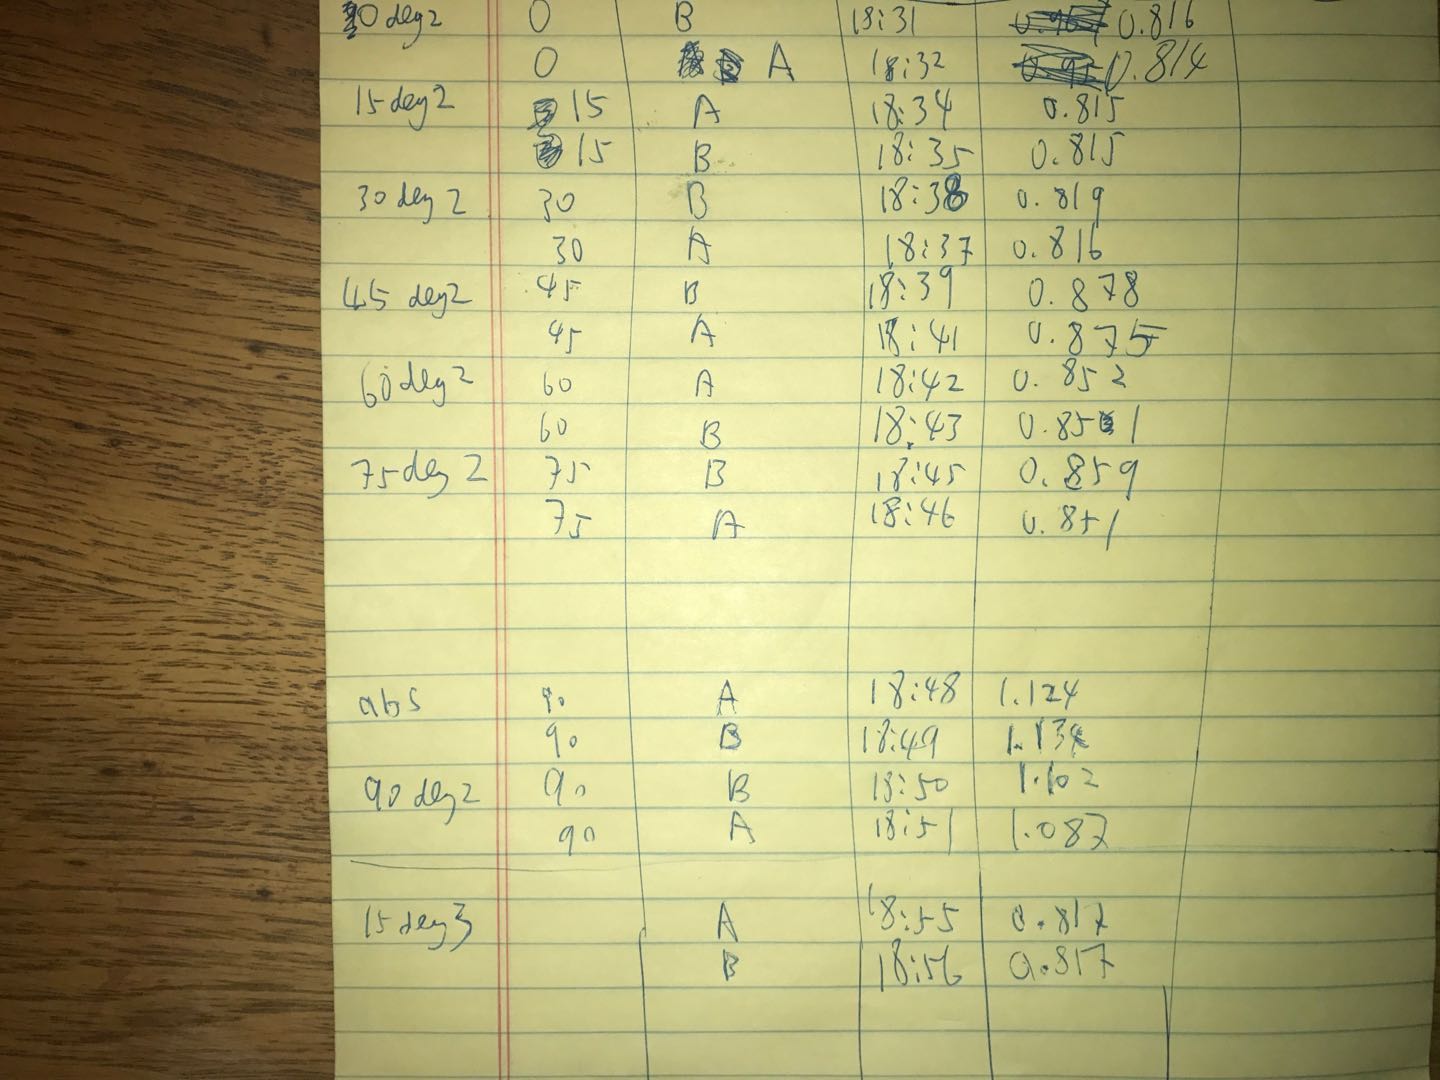 0 deg2 0 B 18:31 0.816
0 A 18:32 0.814
15 deg2 15 A 18:34 0.815
15 B 18:35 0.815
30 deg 2 30 B 18:38 0.819
30 A 18:37 0.816
45 deg2 45 B 18:39 0.878
45 A 18:41 0.875
60 deg 2 60 A 18:42 0.852
60 B 18:43 0.851
75 deg 2 75 B 18:45 0.859
75 A 18:46 0.851
abs 90 A 18:48 1.124
90 B 18:49
90 deg2 90 B 18:50 1.102
90 A 18:51 1.087
15 deg3 A 18:55 0.817
B 18:56 0.817